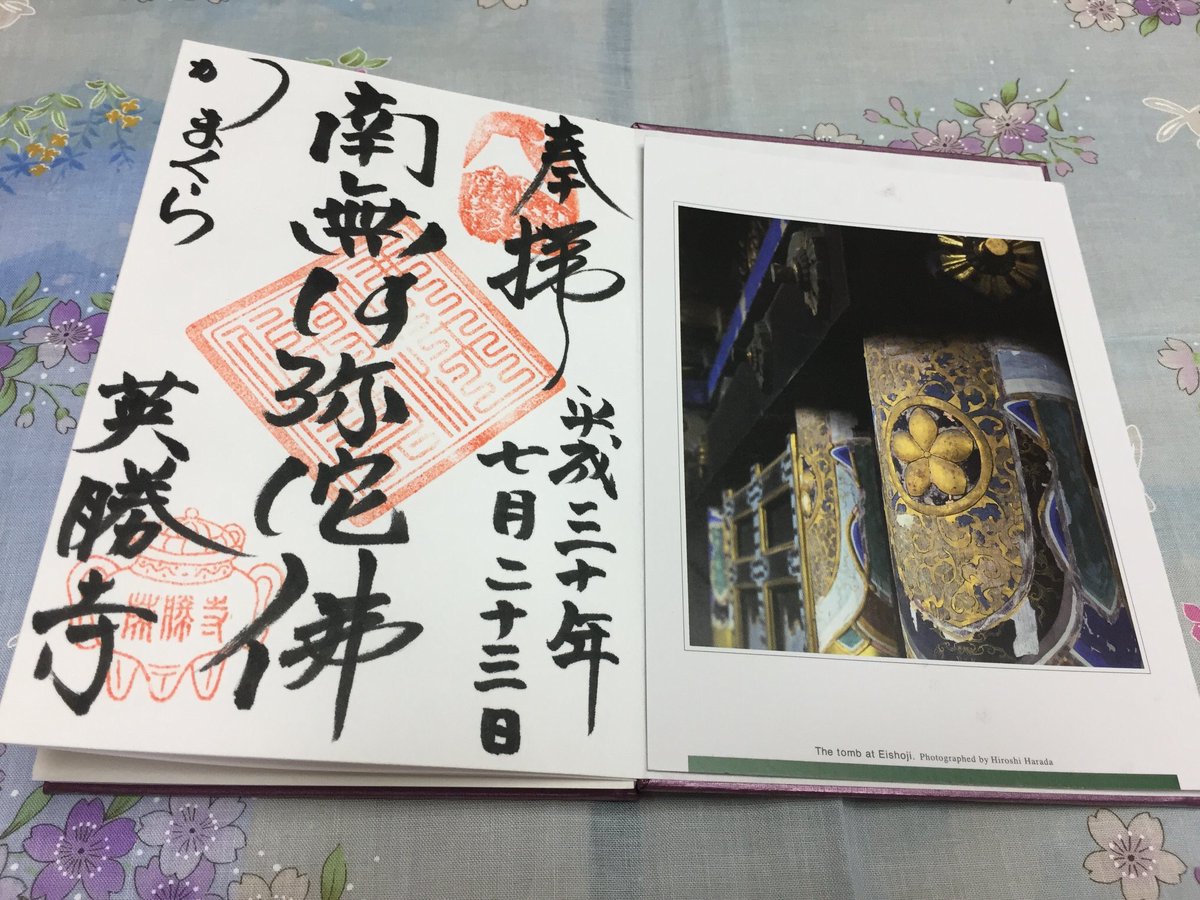 奉拝
平成三十年
七月二十三日
南無阿弥陀佛
かまくら
英勝寺
英勝寺
The tomb at Eishoji. Photographed by Hiroshi Harada